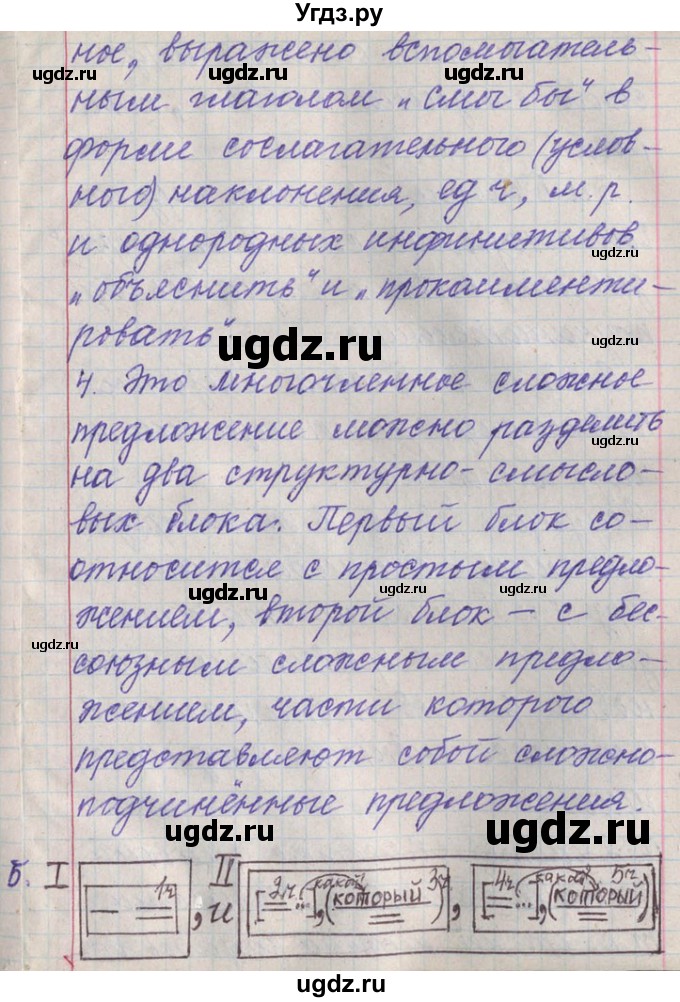 Угдз.ру
ное, выражено вспомогатель-
ным глаголом „смог бы“ в
форме сослагательного (услов-
ного) наклонения, ед ч, м.р.
и однородных инфинитивов
„объяснить“ и „прокомменти-
ровать“
4. Это многочленное сложное
предложение можно разделить
на два структурно-смысло-
вых блока. Первый блок со-
относится с простым предло-
жением, второй блок – с бес-
союзным сложным предло-
жением, части которого
представляют собой сложно-
подчинённые предложения.
5. I [— = 1ч], и II [[2ч = ...], какой? (который = 3ч), [4ч = ...], какая? (который = 5ч)]
ugdz.ru